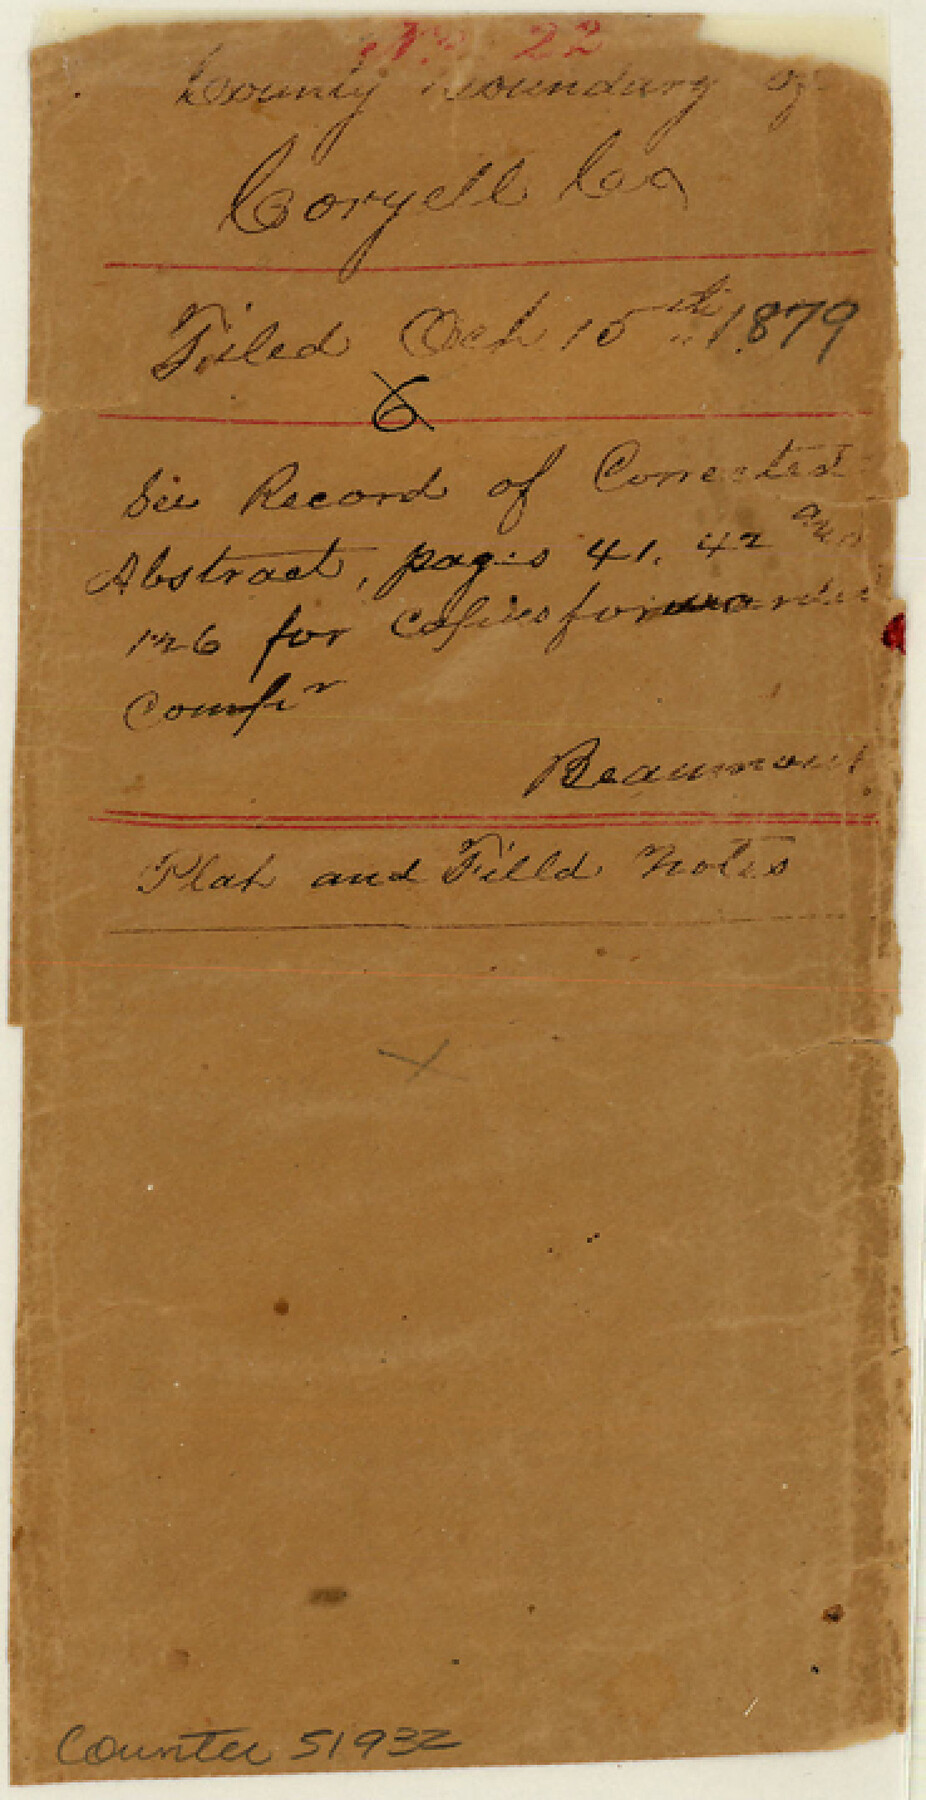 No. 22
County Boundary of
Coryell Co
Filed Oct 15th 1879
6
See Record of Corrected
Abstract, pages 41. 42 and
126 for Copies forwarded
Beaumont
Plat and Filld Notes
X
Counter 51932